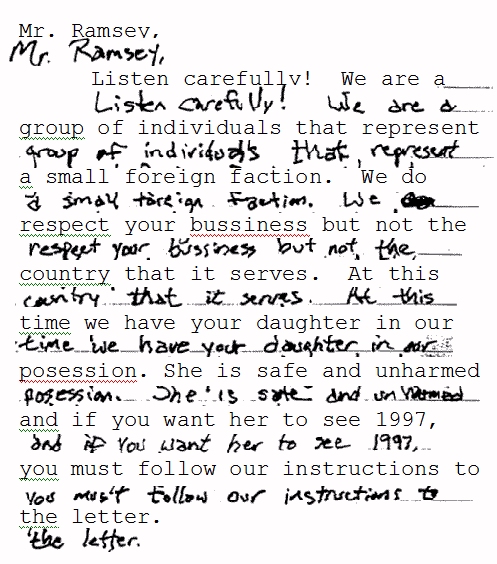 Mr. Ramsey,
Mr. Ramsey,
Listen carefully! We are a
Listen carefully! We are a
group of individuals that represent
group of individuals that represent
a small foreign faction. We do
a small foreign faction. We
respect your bussiness but not the
respect your bussiness but not the
country that it serves. At this
country that it serves. At this
time we have your daughter in our
time we have your daughter in our
posession. She is safe and unharmed
posession. She is safe and unharmed
and if you want her to see 1997,
and if you want her to see 1997,
you must follow our instructions to
you must follow our instructions to
the letter.
the letter.